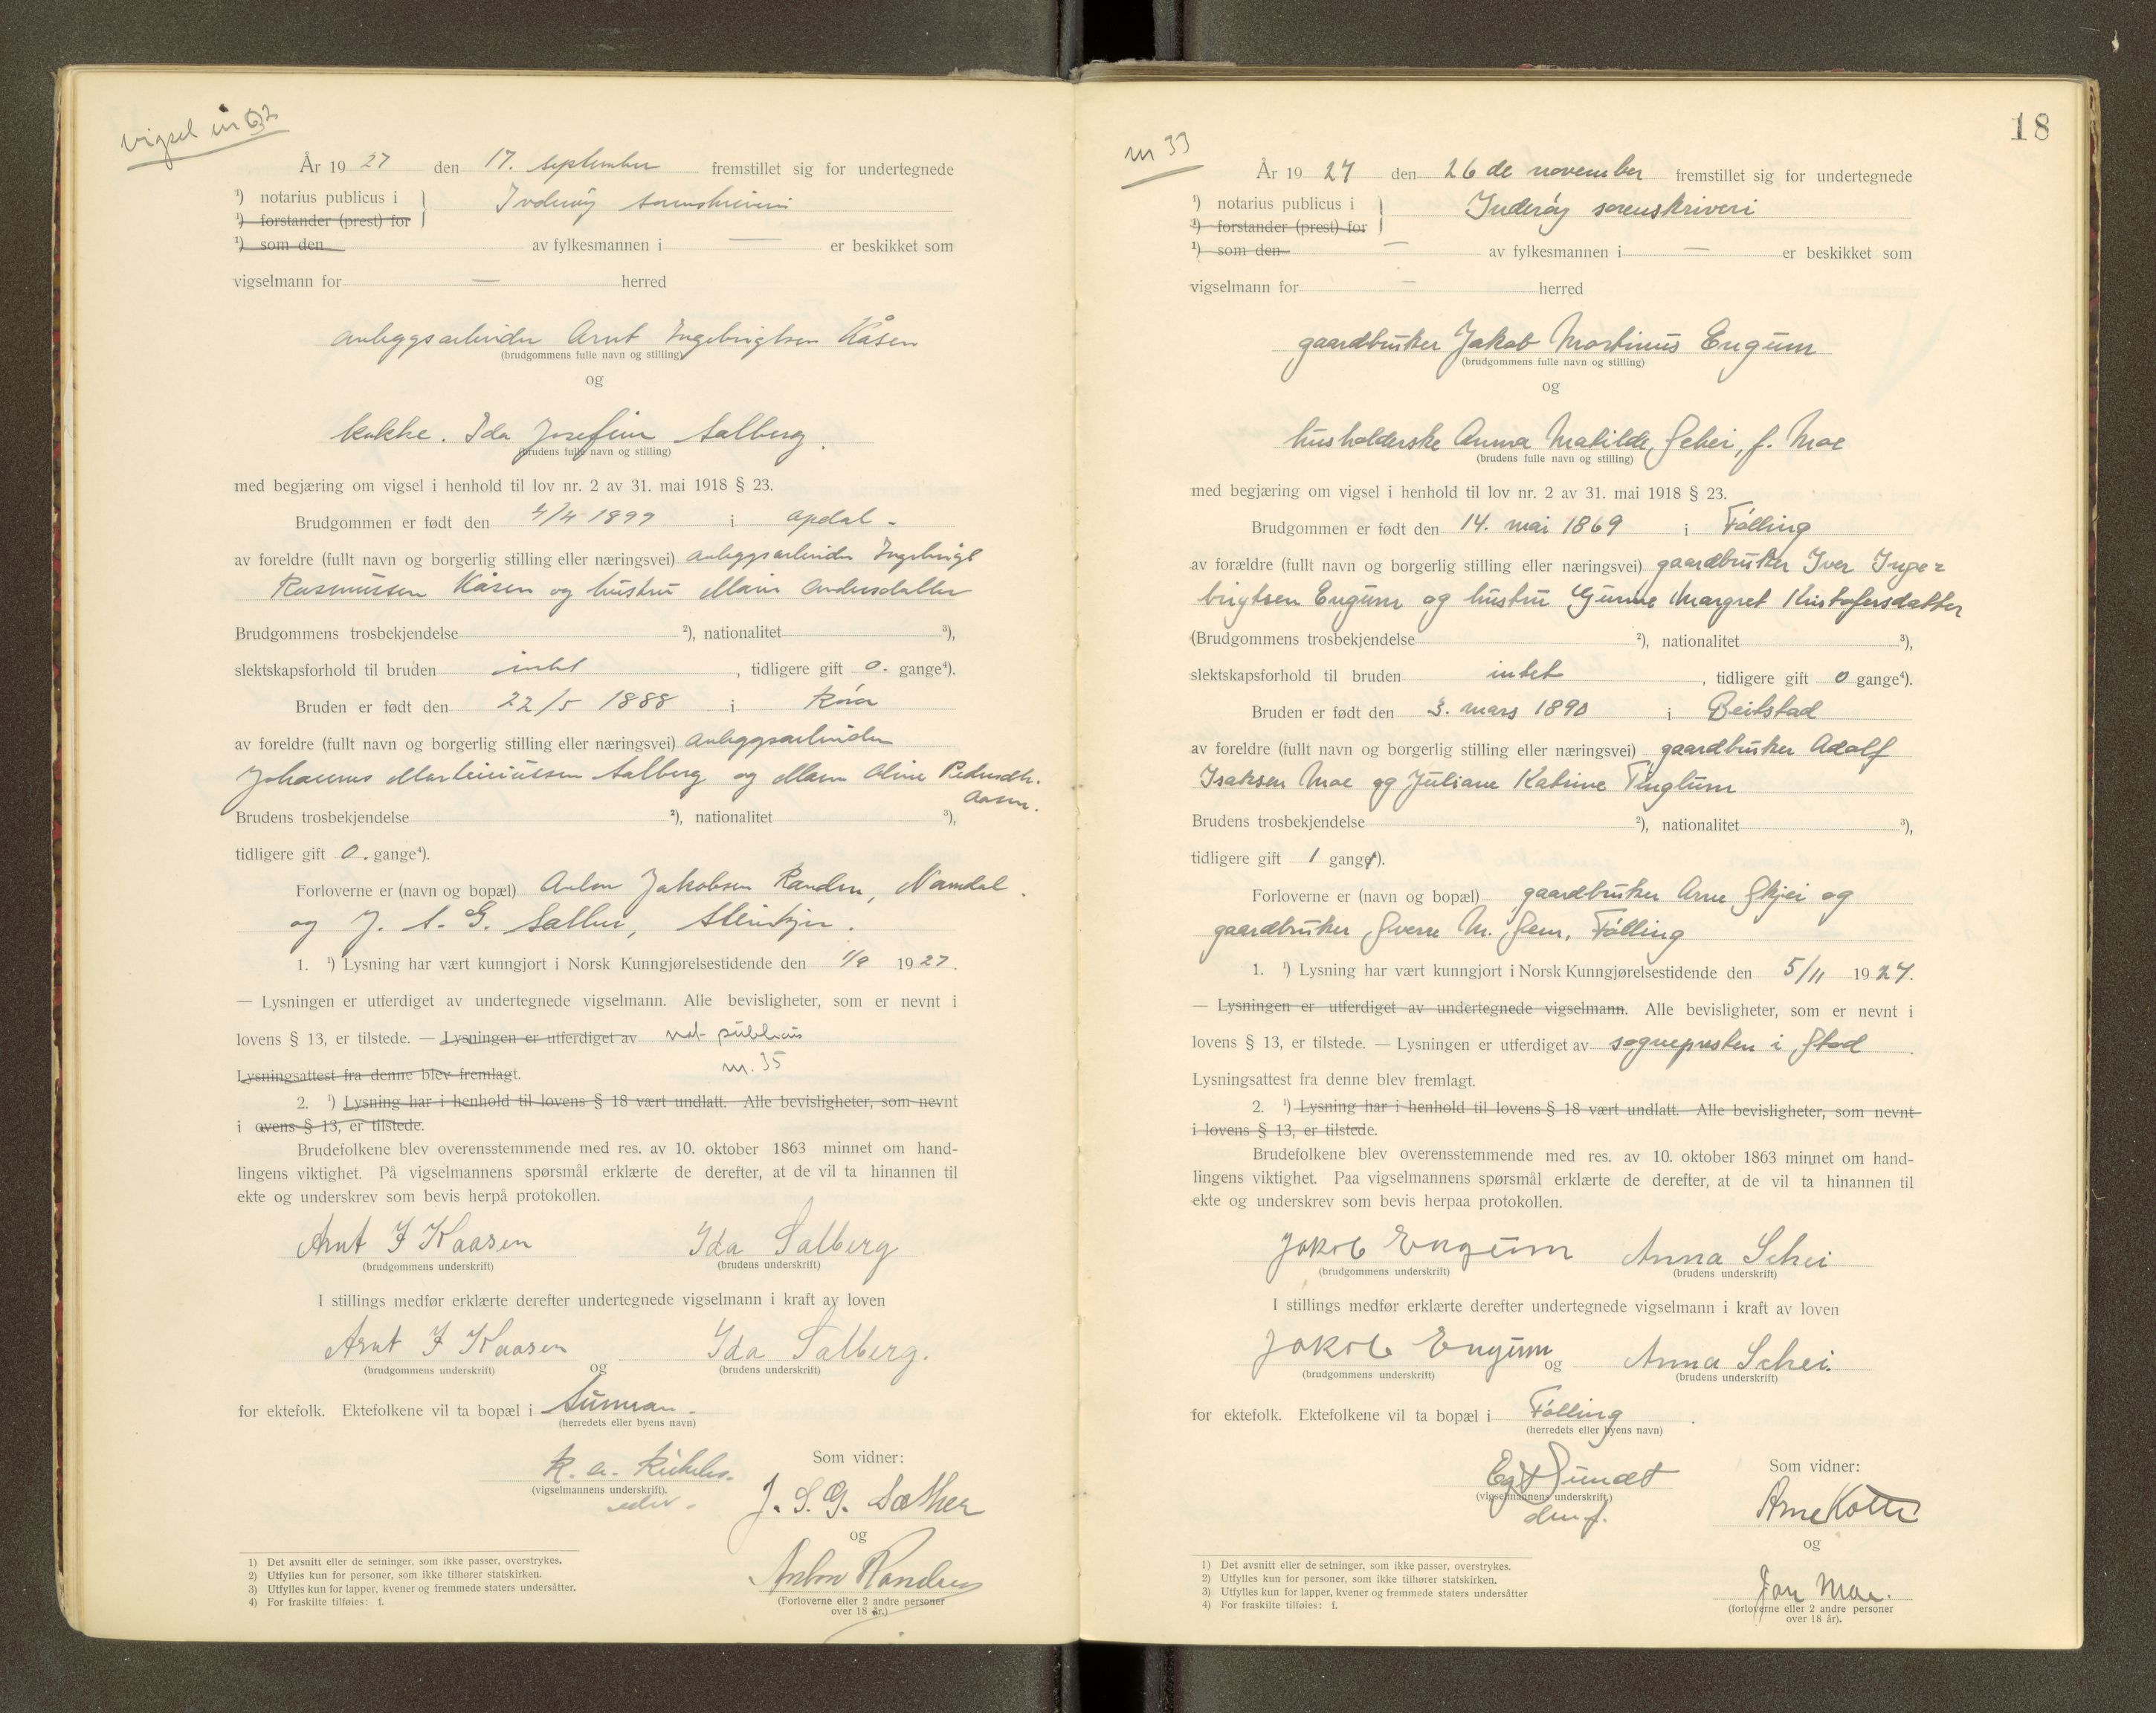 vigsel nr 32
År 19 27 den 17. september fremstillet sig for undertegnede
¹) notarius publicus i
Inderöy sorenskriveri
¹) forstander (prest) for
¹) som den av fylkesmannen i — er beskikket som
vigselmann for — herred
anleggsarbeider Arnt Ingebrigtsen Kåsen
(brudgommens fulle navn og stilling)
og
kokke. Ida Josefine Salberg.
(brudens fulle navn og stilling)
med begjæring om vigsel i henhold til lov nr. 2 av 31. mai 1918 § 23.
Brudgommen er født den 4/4 1899 i Opdal -
av foreldre (fullt navn og borgerlig stilling eller næringsvei) anleggsarbeider Ingebrigt
Rasmussen Kåsen og hustru Marie Andersdatter
Brudgommens trosbekjendelse ²), nationalitet ³),
slektskapsforhold til bruden intet , tidligere gift 0. gange⁴).
Bruden er født den 22/5 1888 i
av foreldre (fullt navn og borgerlig stilling eller næringsvei) anleggsarbeider
Johannes Martiniussen Salberg og Maren Oline Pedersdtr.
Aasen.
Brudens trosbekjendelse ²), nationalitet ³),
tidligere gift 0. gange⁴).
Forloverne er (navn og bopæl) Anton Jakobsen Randen, Namdal.
og J. S. G. Sæther, Steinkjer.
1. ¹) Lysning har vært kunngjort i Norsk Kunngjørelsestidende den 1/9 1927.
— Lysningen er utferdiget av undertegnede vigselmann. Alle bevisligheter, som er nevnt i
lovens § 13, er tilstede. — Lysningen er utferdiget av not publicus
Lysningsattest fra denne blev fremlagt. nr. 35
2. ¹) Lysning har i henhold til lovens § 18 vært undlatt. Alle bevisligheter, som nevnt
i ovens § 13, er tilstede.
Brudefolkene blev overensstemmende med res. av 10. oktober 1863 minnet om hand-
lingens viktighet. På vigselmannens spørsmål erklærte de derefter, at de vil ta hinannen til
ekte og underskrev som bevis herpå protokollen.
Arnt I Kaasen Ida Salberg
(brudgommens underskrift) (brudens underskrift)
I stillings medfør erklærte derefter undertegnede vigselmann i kraft av loven
Arnt I Kaasen Ida Salberg.
(brudgommens underskrift) og (brudens underskrift)
for ektefolk. Ektefolkene vil ta bopæl i Sunnan.
(herredets eller byens navn)
Som vidner:
(vigselmannens underskrift).
J. S. G. Sæther
og
Anton Randen
(Forloverne eller 2 andre personer
over 18 år.)
1) Det avsnitt eller de setninger, som ikke passer, overstrykes.
2) Utfylles kun for personer, som ikke tilhører statskirken.
3) Utfylles kun for lapper, kvener og fremmede staters undersåtter.
4) For fraskilte tilføies: f.
18
nr 33
År 19 27 den 26 de november fremstillet sig for undertegnede
¹) notarius publicus i
Inderöy sorenskriveri
¹) forstander (prest) for
¹) som den — av fylkesmannen i — er beskikket som
vigselmann for — herred
gaardbruker Jakob Martinus Engum
(brudgommens fulle navn og stilling)
og
husholderske Anna Matilde Schei, f. Moe
(brudens fulle navn og stilling)
med begjæring om vigsel i henhold til lov nr. 2 av 31. mai 1918 § 23.
Brudgommen er født den 14. mai 1869 i Følling
av forældre (fullt navn og borgerlig stilling eller næringsvei) gaardbruker Iver Inge=
brigtsen Engum og hustru Gunne Margret Kristofersdatter
(Brudgommens trosbekjendelse ²), nationalitet ³),
slektskapsforhold til bruden intet , tidligere gift 0 gange⁴).
Bruden er født den 3. mars 1890 i Beitstad
av foreldre (fullt navn og borgerlig stilling eller næringsvei) gaardbruker Adolf
Isaksen Moe og Juliane Katrine Tinglum
Brudens trosbekjendelse ²), nationalitet ³),
tidligere gift 1 gang⁴).
Forloverne er (navn og bopæl) gaardbruker Arne Skjei og
gaardbruker Sverre M. Sem, Følling
1. ¹) Lysning har vært kunngjort i Norsk Kunngjørelsestidende den 5/11 1927.
— Lysningen er utferdiget av undertegnede vigselmann. Alle bevisligheter, som er nevnt i
lovens § 13, er tilstede. — Lysningen er utferdiget av sognepresten i Stod .
Lysningsattest fra denne blev fremlagt.
2. ¹) Lysning har i henhold til lovens § 18 vært undlatt. Alle bevisligheter, som nevnt
i lovens § 13, er tilstede.
Brudefolkene blev overensstemmende med res. av 10. oktober 1863 minnet om hand-
lingens viktighet. Paa vigselmannens spørsmål erklærte de derefter, at de vil ta hinannen til
ekte og underskrev som bevis herpaa protokollen.
Jakob Engum Anna Schei
(brudgommens underskrift) (brudens underskrift)
I stillings medfør erklærte derefter undertegnede vigselmann i kraft av loven
Jakob Engum og Anna Schei.
(brudgommens underskrift) (brudens underskrift)
for ektefolk. Ektefolkene vil ta bopæl i Følling .
(herredets eller byens navn)
Sundt
Som vidner:
(vigselmannens underskrift)
dmf.
Arne
og
Jon Moe.
(forloverne eller 2 andre personer
over 18 år).
1) Det avsnitt eller de setninger, som ikke passer, overstrykes.
2) Utfylles kun for personer, som ikke tilhører statskirken.
3) Utfylles kun for lapper, kvener og fremmede staters undersåtter
4) For fraskilte tilføies: f.